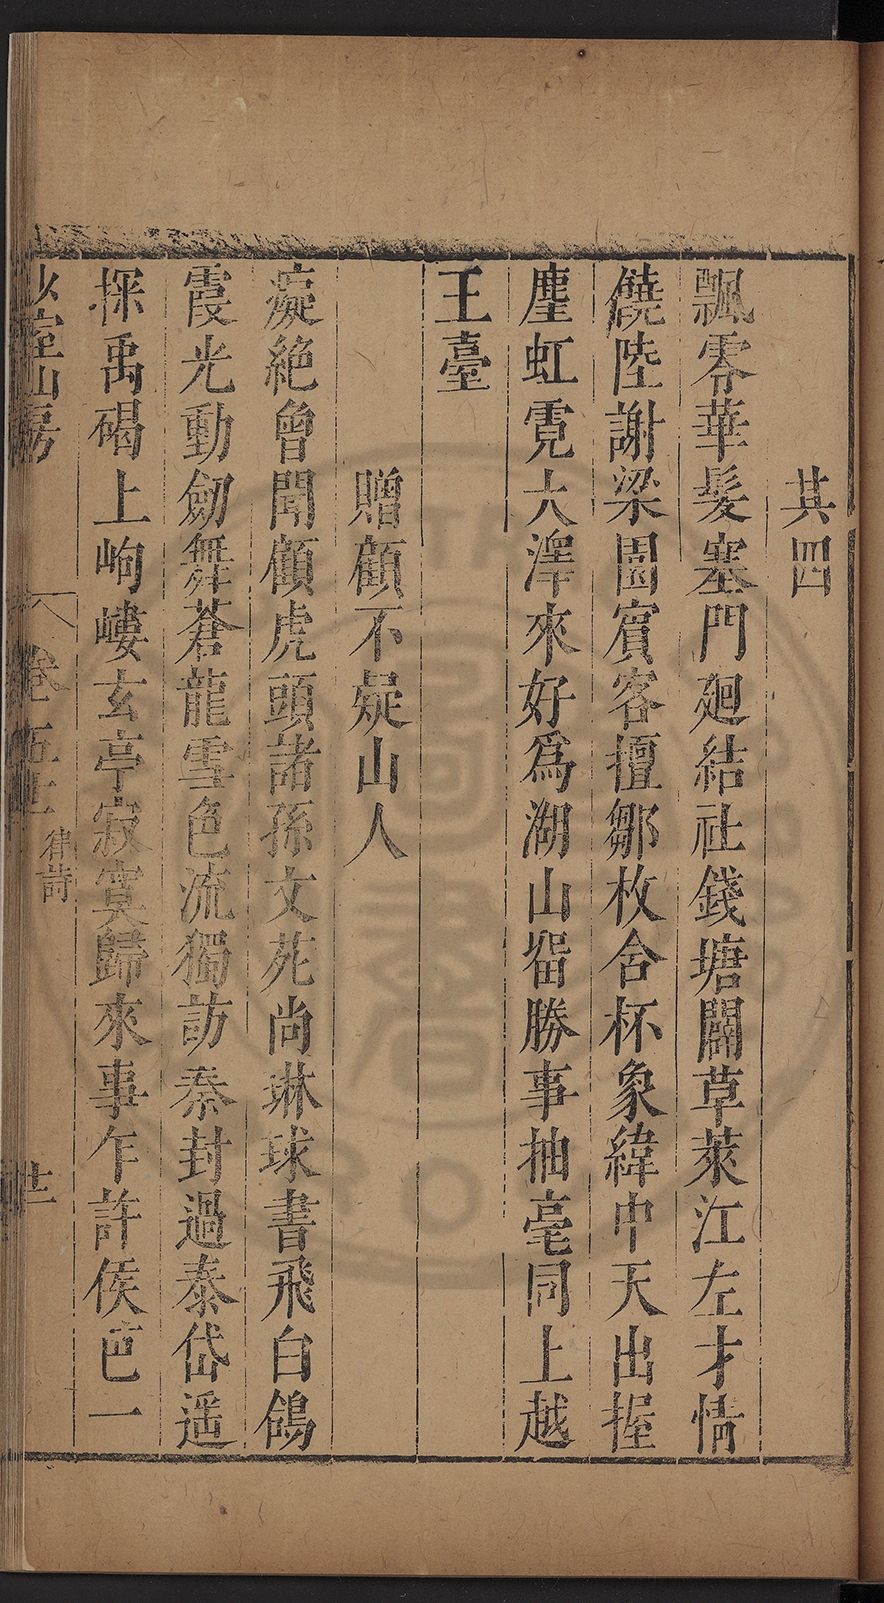 其四
飄零華髮塞門廻結社錢塘闢草萊江左才情
饒陸謝梁園賓客擅鄒枚含杯象緯中天出握
麈虹霓大澤來好爲湖山畱勝事抽毫同上越
王臺
贈顧不疑山人
癡絶曾聞顧虎頭諸孫文苑尚琳球書飛白鴿
霞光動劒舞蒼龍雪色流獨訪秦封過泰岱遥
探禹碣上岣嶁玄亭寂寞歸來事乍許侯芭一
少室山房 卷五 律詩